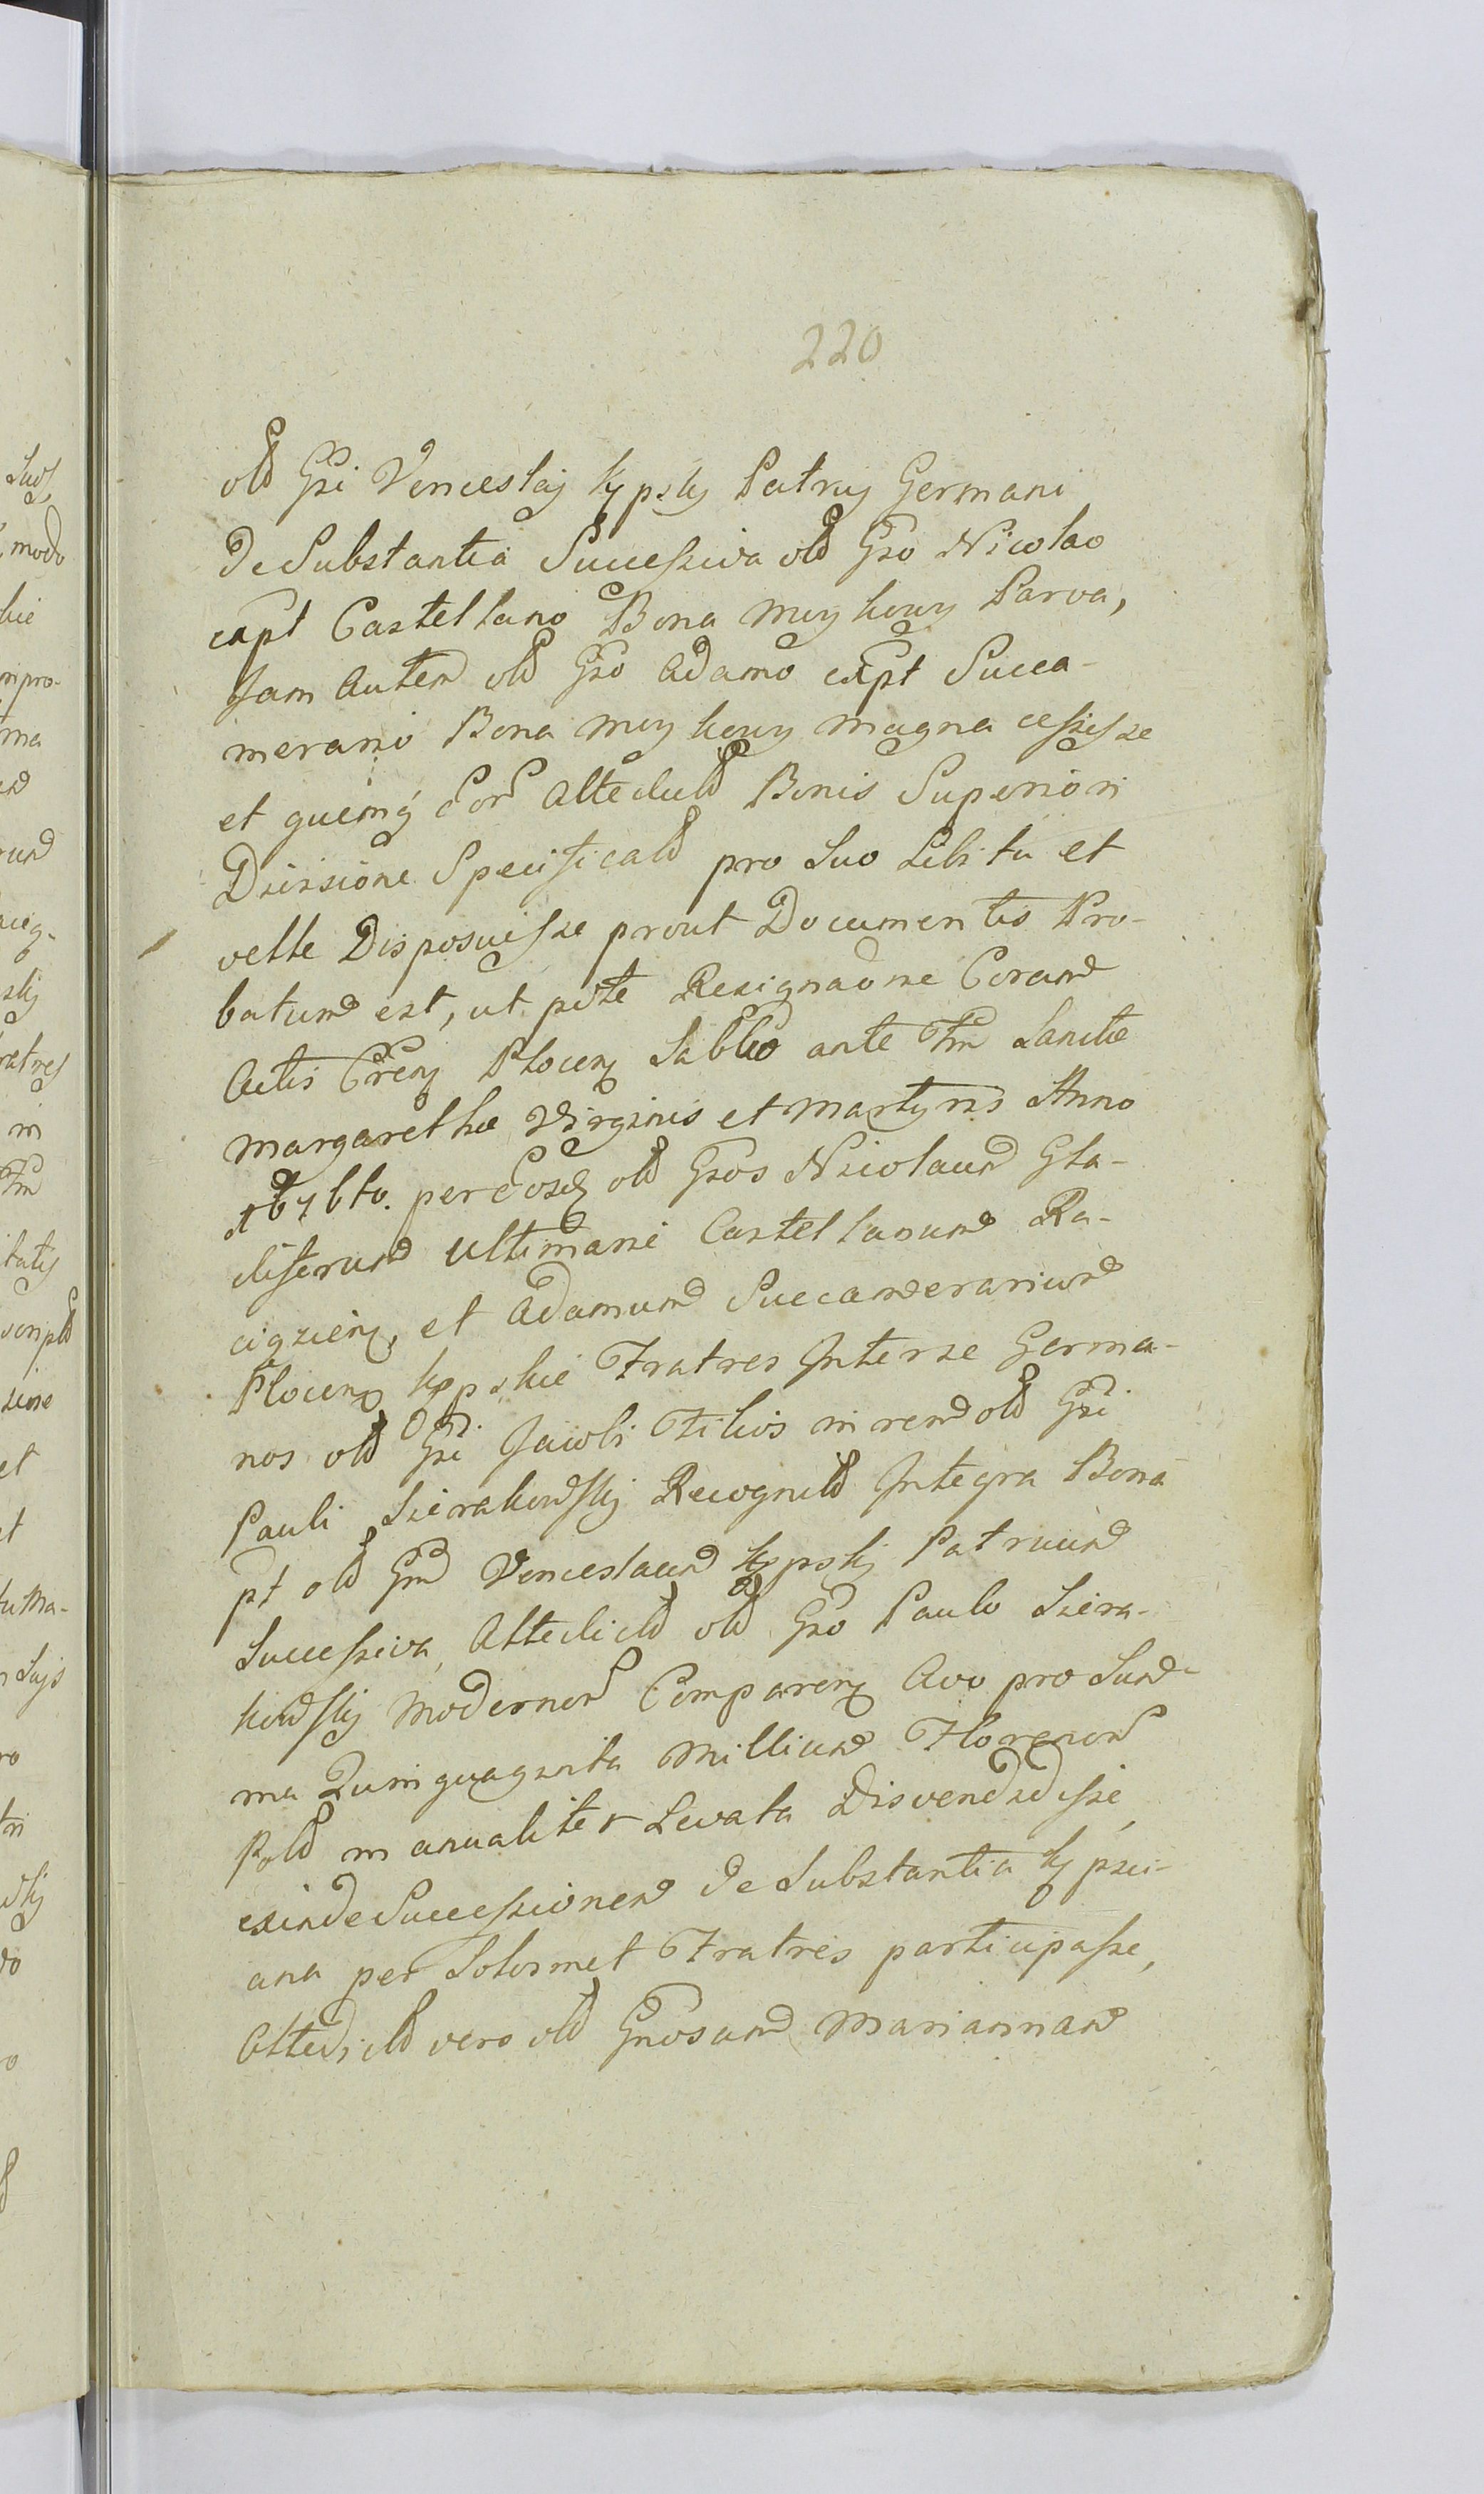 220
old Gsi Venceslaij Kępskij Patruij Germani
De Substantia Successiva old Gso Nicolao
expt Castellano Bona Myszkowy Parva,
Jam Autem old Gso Adamo expt Succa-
merario Bona magna cessisse
et quemq́ Eor Attactuld Bonis Superiori
Divisione Specificald pro Suo Libitu et
velle Disposuisse prout Documentis Pro-
batum est, ut pote Resignaone Coram
Actis Plocen Sabbo ante Ftm Sanctæ
Margarethæ Virginis et Martyris Anno
per Eosd old Gsos Nicolaum Gla-
diferum Ultimarie Castellanum Ra-
ciązien, et Adamum Succamerarium
Plocen Kępskie Fratres Interse Germa-
nos old Gsi Jacobi Filios in rem old Gsi
Pauli Sierakowskij Recognild Integra Bona
pt old Gm Venceslaum Kępskij Patruum
Successiva, old Gso Paulo Siera-
kowskij Modernor Comparen Avo pro Sum-
ma Quinquaginta Millium Florenor
Pold manualiter Levata Disvendidisse,
exinde Successionem de Substantia Kępsci-
ana per Solosmet Fratres participasse,
vero old Gnosam Mariannam